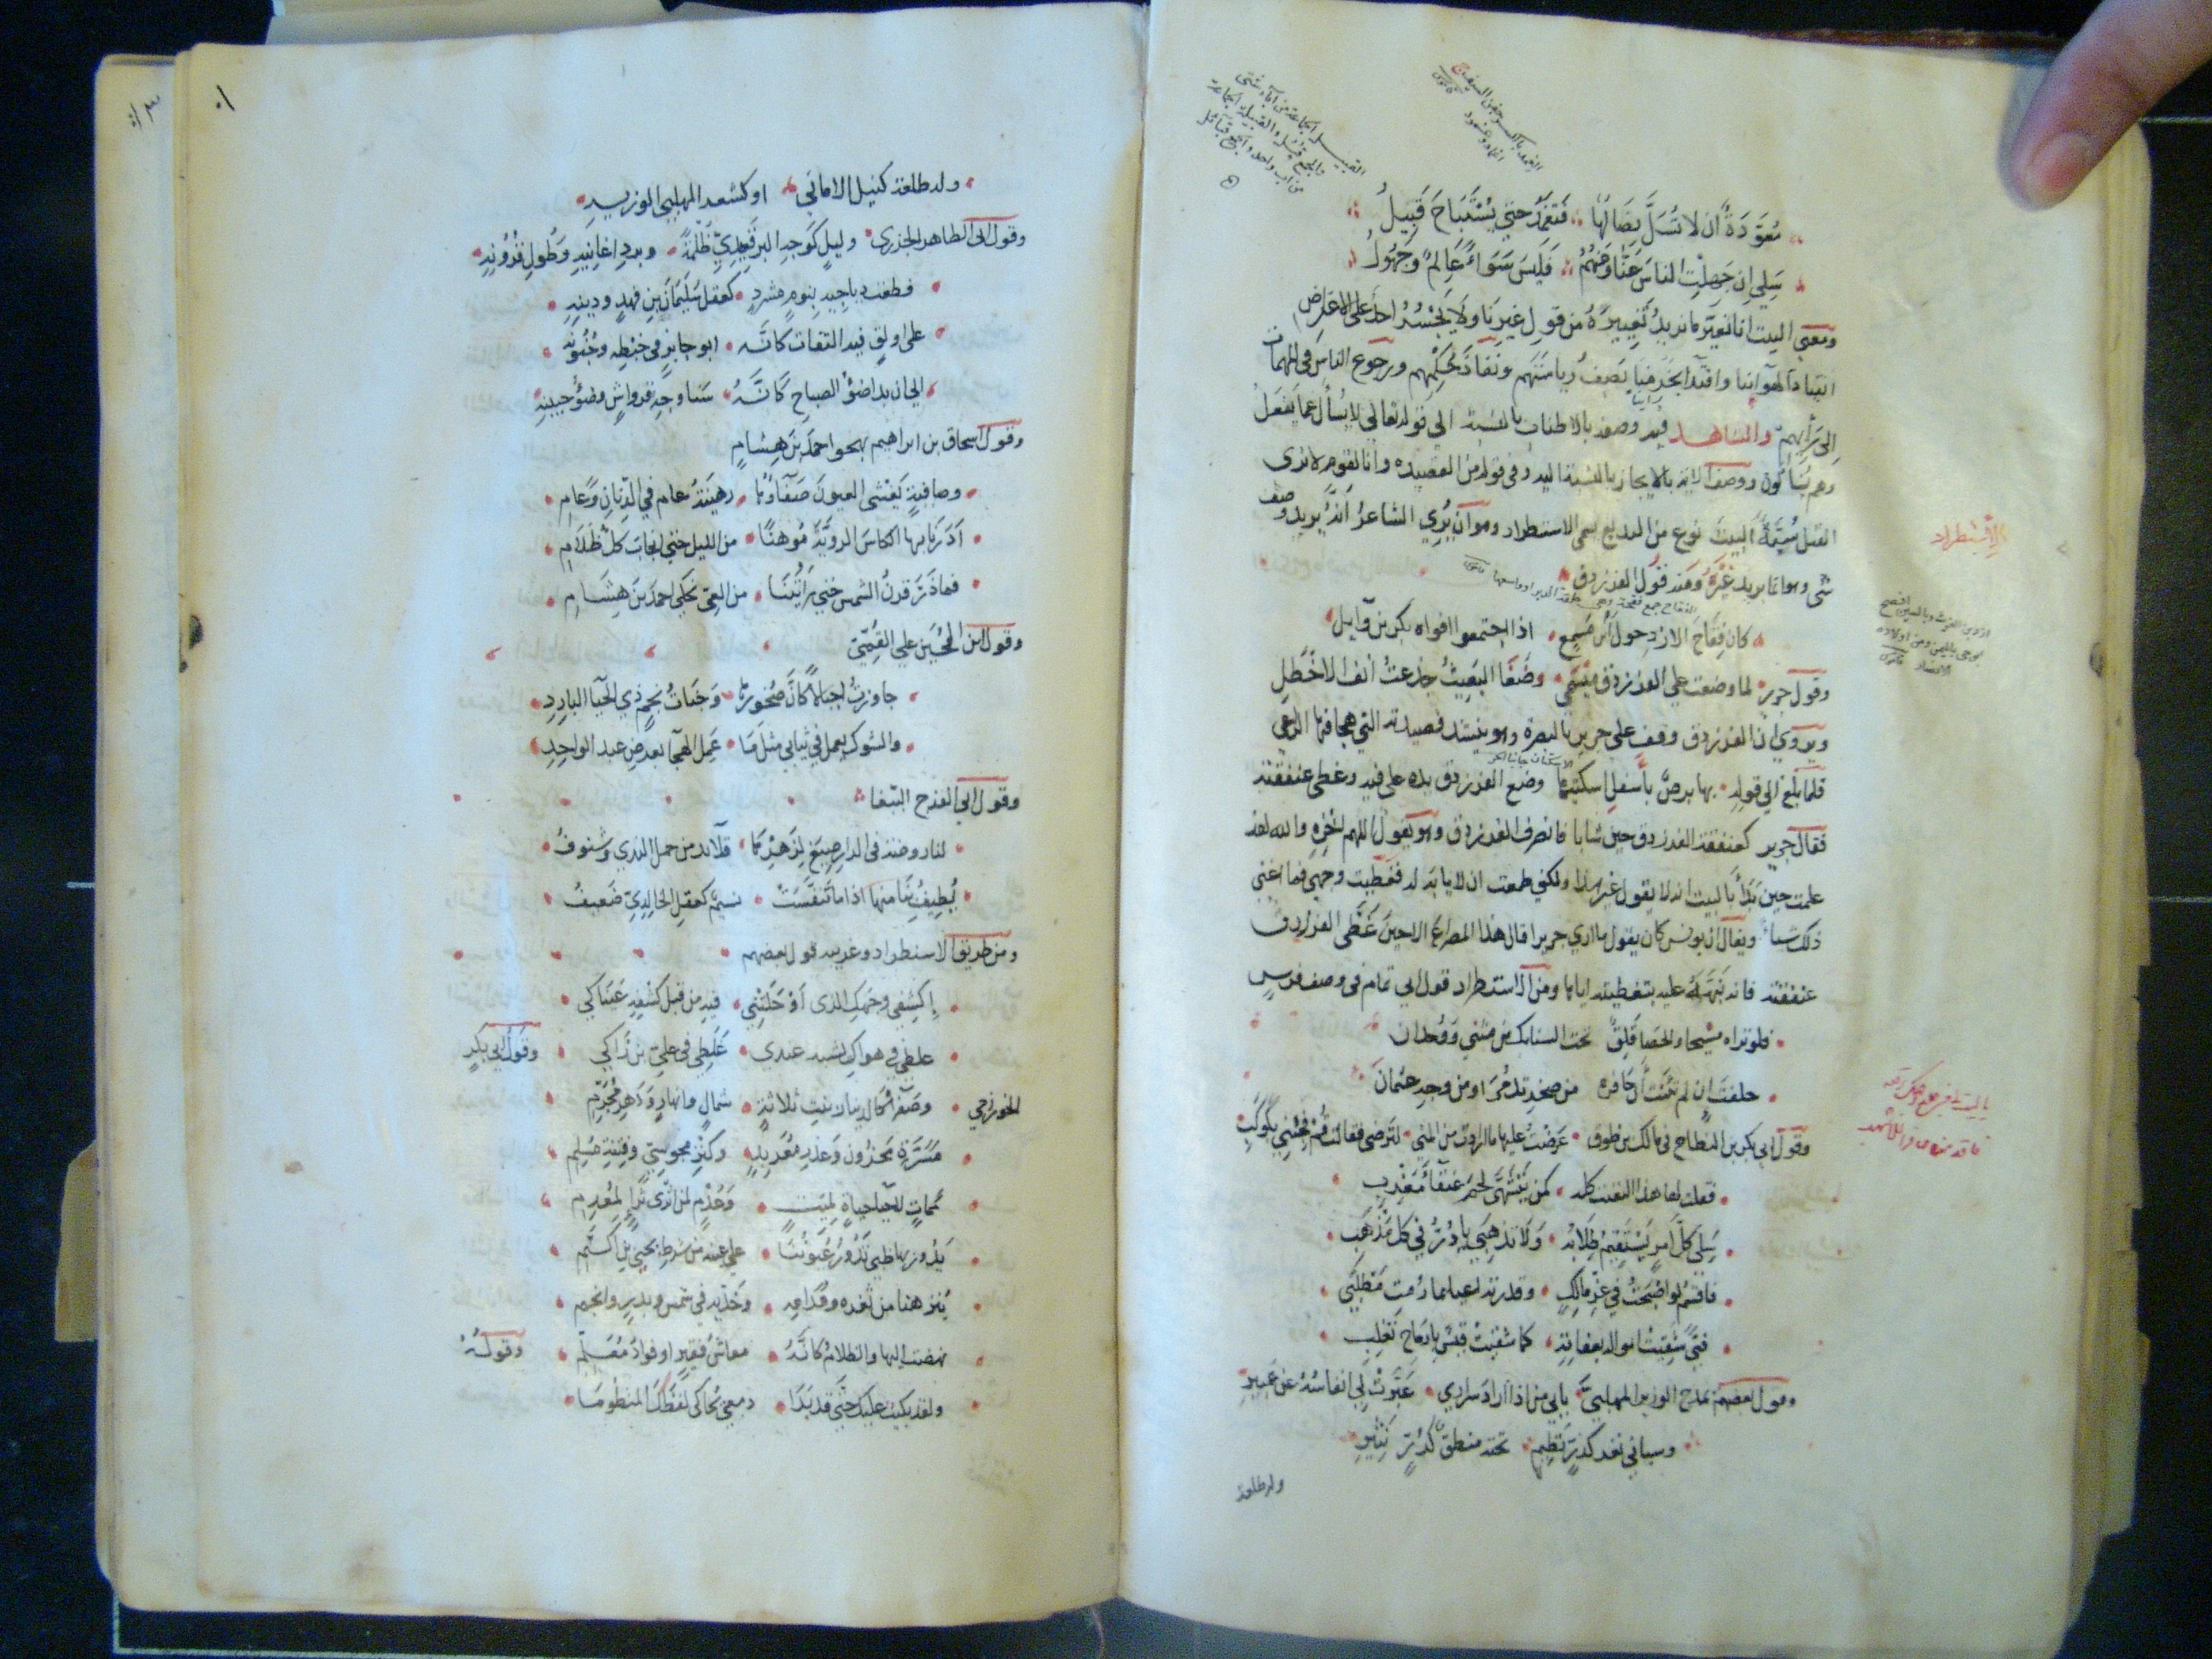 معودة ان لا تسل نصالها فتغمد حتى يستباح قبيل
سلي ان جهلت الناس عنا وعنهم فليس سواء عالم وجهول
ومعنى البيت اننا نغير ما نريد تغييره من قول غيرنا ولا يجسر احد على الاعتراض
انقيادا لهوانا واقتداء بحزمنا يصف رياستهم ونفاذ حكمهم ورجوع الناس في المهمات
الى رأيهم والشاهد فيه وصفه بالاطناب بالنسبة الى قوله تعالى لا يسأل عما يفعل
وهم يسألون ووصف الاية بالايجاز بالنسبة اليه وفي قوله من القصيدة وانا لقوم لا نرى
القتل سبة البيت نوع من البديع يسمى الاستطراد وهو ان يري الشاعر انه يريد وصف
شئ وهو انما يريد غيره ومنه قول الفرزدق
كان فقاح الازد حول ابن مسمع اذا اجتمعوا افواه بكر بن وايل
وقول جرير لما وضعت على الفرزدق ميسمي وضغا البعيث جدعت انف الاخطل
ويروى ان الفرزدق وقف على جرير بالبصرة وهو ينشد قصيدته التي هجا فيها الراعي
فلما بلغ الى قوله بها برص باسفل اسكتيها وضع الفرزدق يده على فيه وغطى عنفقته
فقال جرير كعنفقة الفرزدق حين شابا فانصرف الفرزدق وهو يقول اللهم اخزه والله لقد
علمت حين بدأ بالبيت انه لا يقول غير هذا ولكني طمعت ان لا يابه له فغطيت وجهي فما اغنى
ذلك شيأ ويقال ان يونس كان يقول ما ارى جريرا قال هذا المصراع الا حين غطى الفرزدق
عنفقته فانه نبهه عليه بتغطيته اياها ومن الاستطراد قول ابي تمام في وصف فرس
فلو تراه مشيحا والحصا فلق تحت السنابك من مثنى ووحدان
حلفت ان لم تثبت ان حافره من صخر تدمر او من وجه عثمان
وقول ابي بكر بن النطاح في مالك بن طوق عرضت عليها ما ارادت من المنى لترضى فقالت قم فجئني بكوكب
فقلت لها هذا التعنت كله كمن يتشهى لحم عنقاء مغرب
سلي كل امر يستقيم طلابه ولا تذهبي يا در في كل مذهب
فاقسم لو اصبحت في عز مالك وقدرته اعيا بما رمت مطلبي
فتى شقيت امواله بعفاته كما شقيت قيس بارماح تغلب
وقول بعضهم يمدح الوزير المهلبي بابي من اذا اراد سراري عبرت لي انفاسه عن عبير
وسباني ثغر كدر نظيم تحته منطق كدر نثير
وله طلعة
الاستطراد
وله طلعة كنيل الاماني او كشعر المهلبي الوزير
وقول ابي الطاهر الجزري وليل كوجه البرقعيدي ظلمة وبرد اغانيه وطول قرونه
قطعت دياجيه بنوم مشرد كعقل سليمان بن فهد ودينه
على اولق فيه التفات كانه ابو جابر في خبطه وجنونه
الى ان بدا ضوء الصباح كانه سنا وجه قرواش وضوء جبينه
وقول اسحاق بن ابراهيم يهجو احمد بن هشام
وصافية يغشى العيون صفاؤها رهينة عام في الدنان وعام
ادرنا بها الكاس الروية موهنا من الليل حتى انجاب كل ظلام
فما ذر قرن الشمس حتى رايتنا من العي نحكي احمد بن هشام
وقول ابن الحسين علي القمي
جاوزت اجبالا كان صخورها وجنات نجم ذي الحيا البارد
والشوك يعمل في ثيابي مثل ما عمل الهجا بعرض عبد الواحد
وقول ابي الفرج الببغا
لنا روضة في الدار صيغ لزهرها قلائد من حمل الندى وشنوف
يطيف بنا منها اذا ما تنفست نسيم كعقل الخالدي ضعيف
ومن طريق الاستطراد وغريبه قول بعضهم
اكشفي وجهك الذي اوحلتني فيه من قبل كشفه عيناكي
غلطي في هواك يشبه عندي غلطي في علي بن زاكي وقول ابي بكر
الخوارزمي وصفراء كالدينار بنت ثلاثة شمال وانهار ودهر محرم
مسرة محزون وعذر معربد وكنز مجوسي وفتنة مسلم
ممات لاحيا حياة لميت وعدم لمن اثرى ثراء لمعدم
يدور بها ظبي تدور عيوننا على عينه من شرط يحيى بن اكثم
ينزهنا من ثغره ومدامه وخديه في شمس وبدر وانجم
نهضت اليها والظلام كانه معاش فقير او فؤاد معلم وقوله
ولقد بكيت عليك حتى قد بدا دمعي يحاكي لفظك المنظوما